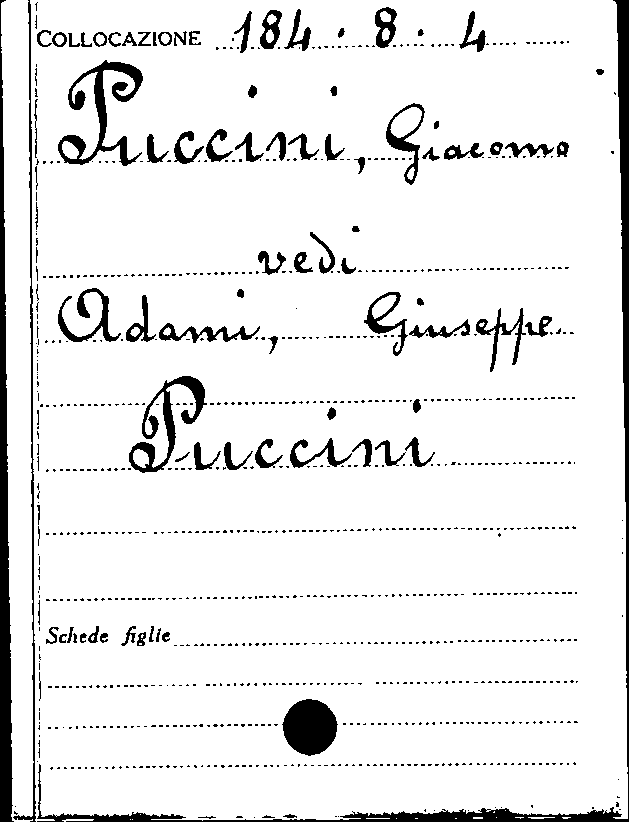 COLLOCAZIONE 184 · 8 · 4
Puccini, Giacomo
vedi
Adami, Giuseppe
Puccini
Schede figlie